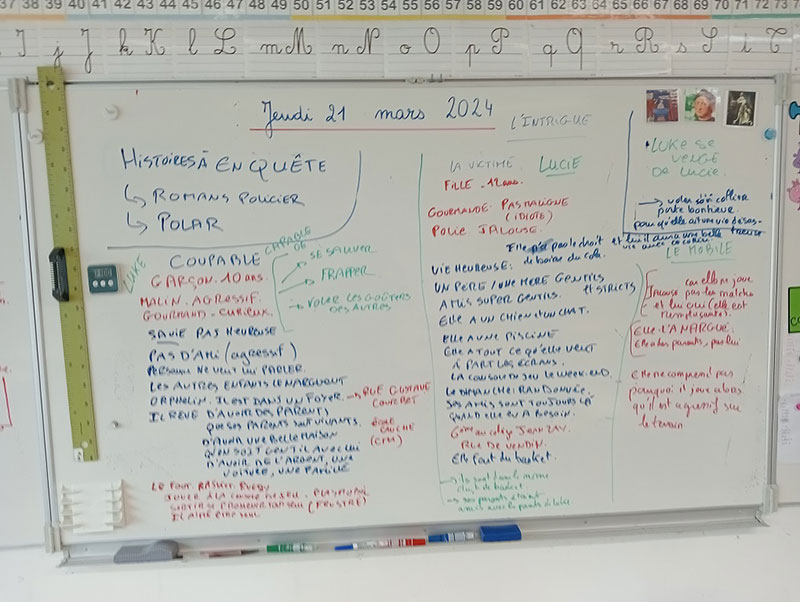 37 38 39 40 41 42 43 44 45 46 47 48 49 50 51 52 53 54 55 56 57 58 59 60 61 62 63 64 65 66 67 68 69 70 71 72 73
I j J k K l L m M n N o O p P q Q r R s S t T
Jeudi 21 mars 2024
HISTOIRES À ENQUÊTE
↳ ROMANS POLICIER
↳ POLAR
LUKE
COUPABLE
GARÇON. 10 ans.
MALIN. AGRESSIF.
GOURMAND. CURIEUX.
CAPABLE
DE
SE SAUVER
FRAPPER
VOLER LES GOÛTERS
DES AUTRES
SA VIE PAS HEUREUSE
PAS D'AMI (agressif)
PERSONNE NE VEUT LUI PARLER.
LES AUTRES ENFANTS LE NARGUENT
ORPHELIN. IL EST DANS UN FOYER.
→ RUE GUSTAVE
COURBET
IL RÊVE D'AVOIR DES PARENTS
QUE SES PARENTS SOIT VIVANTS.
D'AVOIR UNE BELLE MAISON
QU'ON SOIT GENTIL AVEC LUI
D'AVOIR DE L'ARGENT, UNE
VOITURE, UNE FAMILLE
ÉCOLE
(CM1)
LE FOOT. BASKET. RUGBY
JOUER À LA
(FRUSTRÉ)
IL AIME ÊTRE SEUL
L'INTRIGUE
LA VICTIME. LUCIE
FILLE. 12 ans.
GOURMANDE. PAS MALIGNE
(IDIOTE)
POLIE JALOUSE.
VIE HEUREUSE:
UN PÈRE / UNE MÈRE GENTILS
ET STRICTS
AMIS SUPER GENTILS.
ELLE A UN CHIEN ET UN CHAT.
ELLE A UNE PISCINE
ELLE A TOUT CE QU'ELLE VEUT
À PART LES ÉCRANS.
LE WEEK-END.
LE DIMANCHE: RANDONNÉE.
SES AMIS SONT TOUJOURS LÀ
QUAND ELLE EN A BESOIN.
RUE DE VENDIN.
Elle fait du basket.
→ Ils sont dans le même
club de basket
→ ses parents étaient
amis avec les parents de Luke
LUKE SE
VENGE
DE LUCIE.
→ voler son collier
porte bonheur
pour qu'elle ait une vie désas-
treuse
et lui il aura une belle
vie avec ce collier
LE MOBILE
car elle ne joue
pas les matchs
et lui oui (elle est
remplaçante).
ELLE L'A NARGUÉ:
Elle a des parents, pas lui
Elle ne comprend pas
pourquoi il joue alors
qu'il est agressif sur
le terrain.